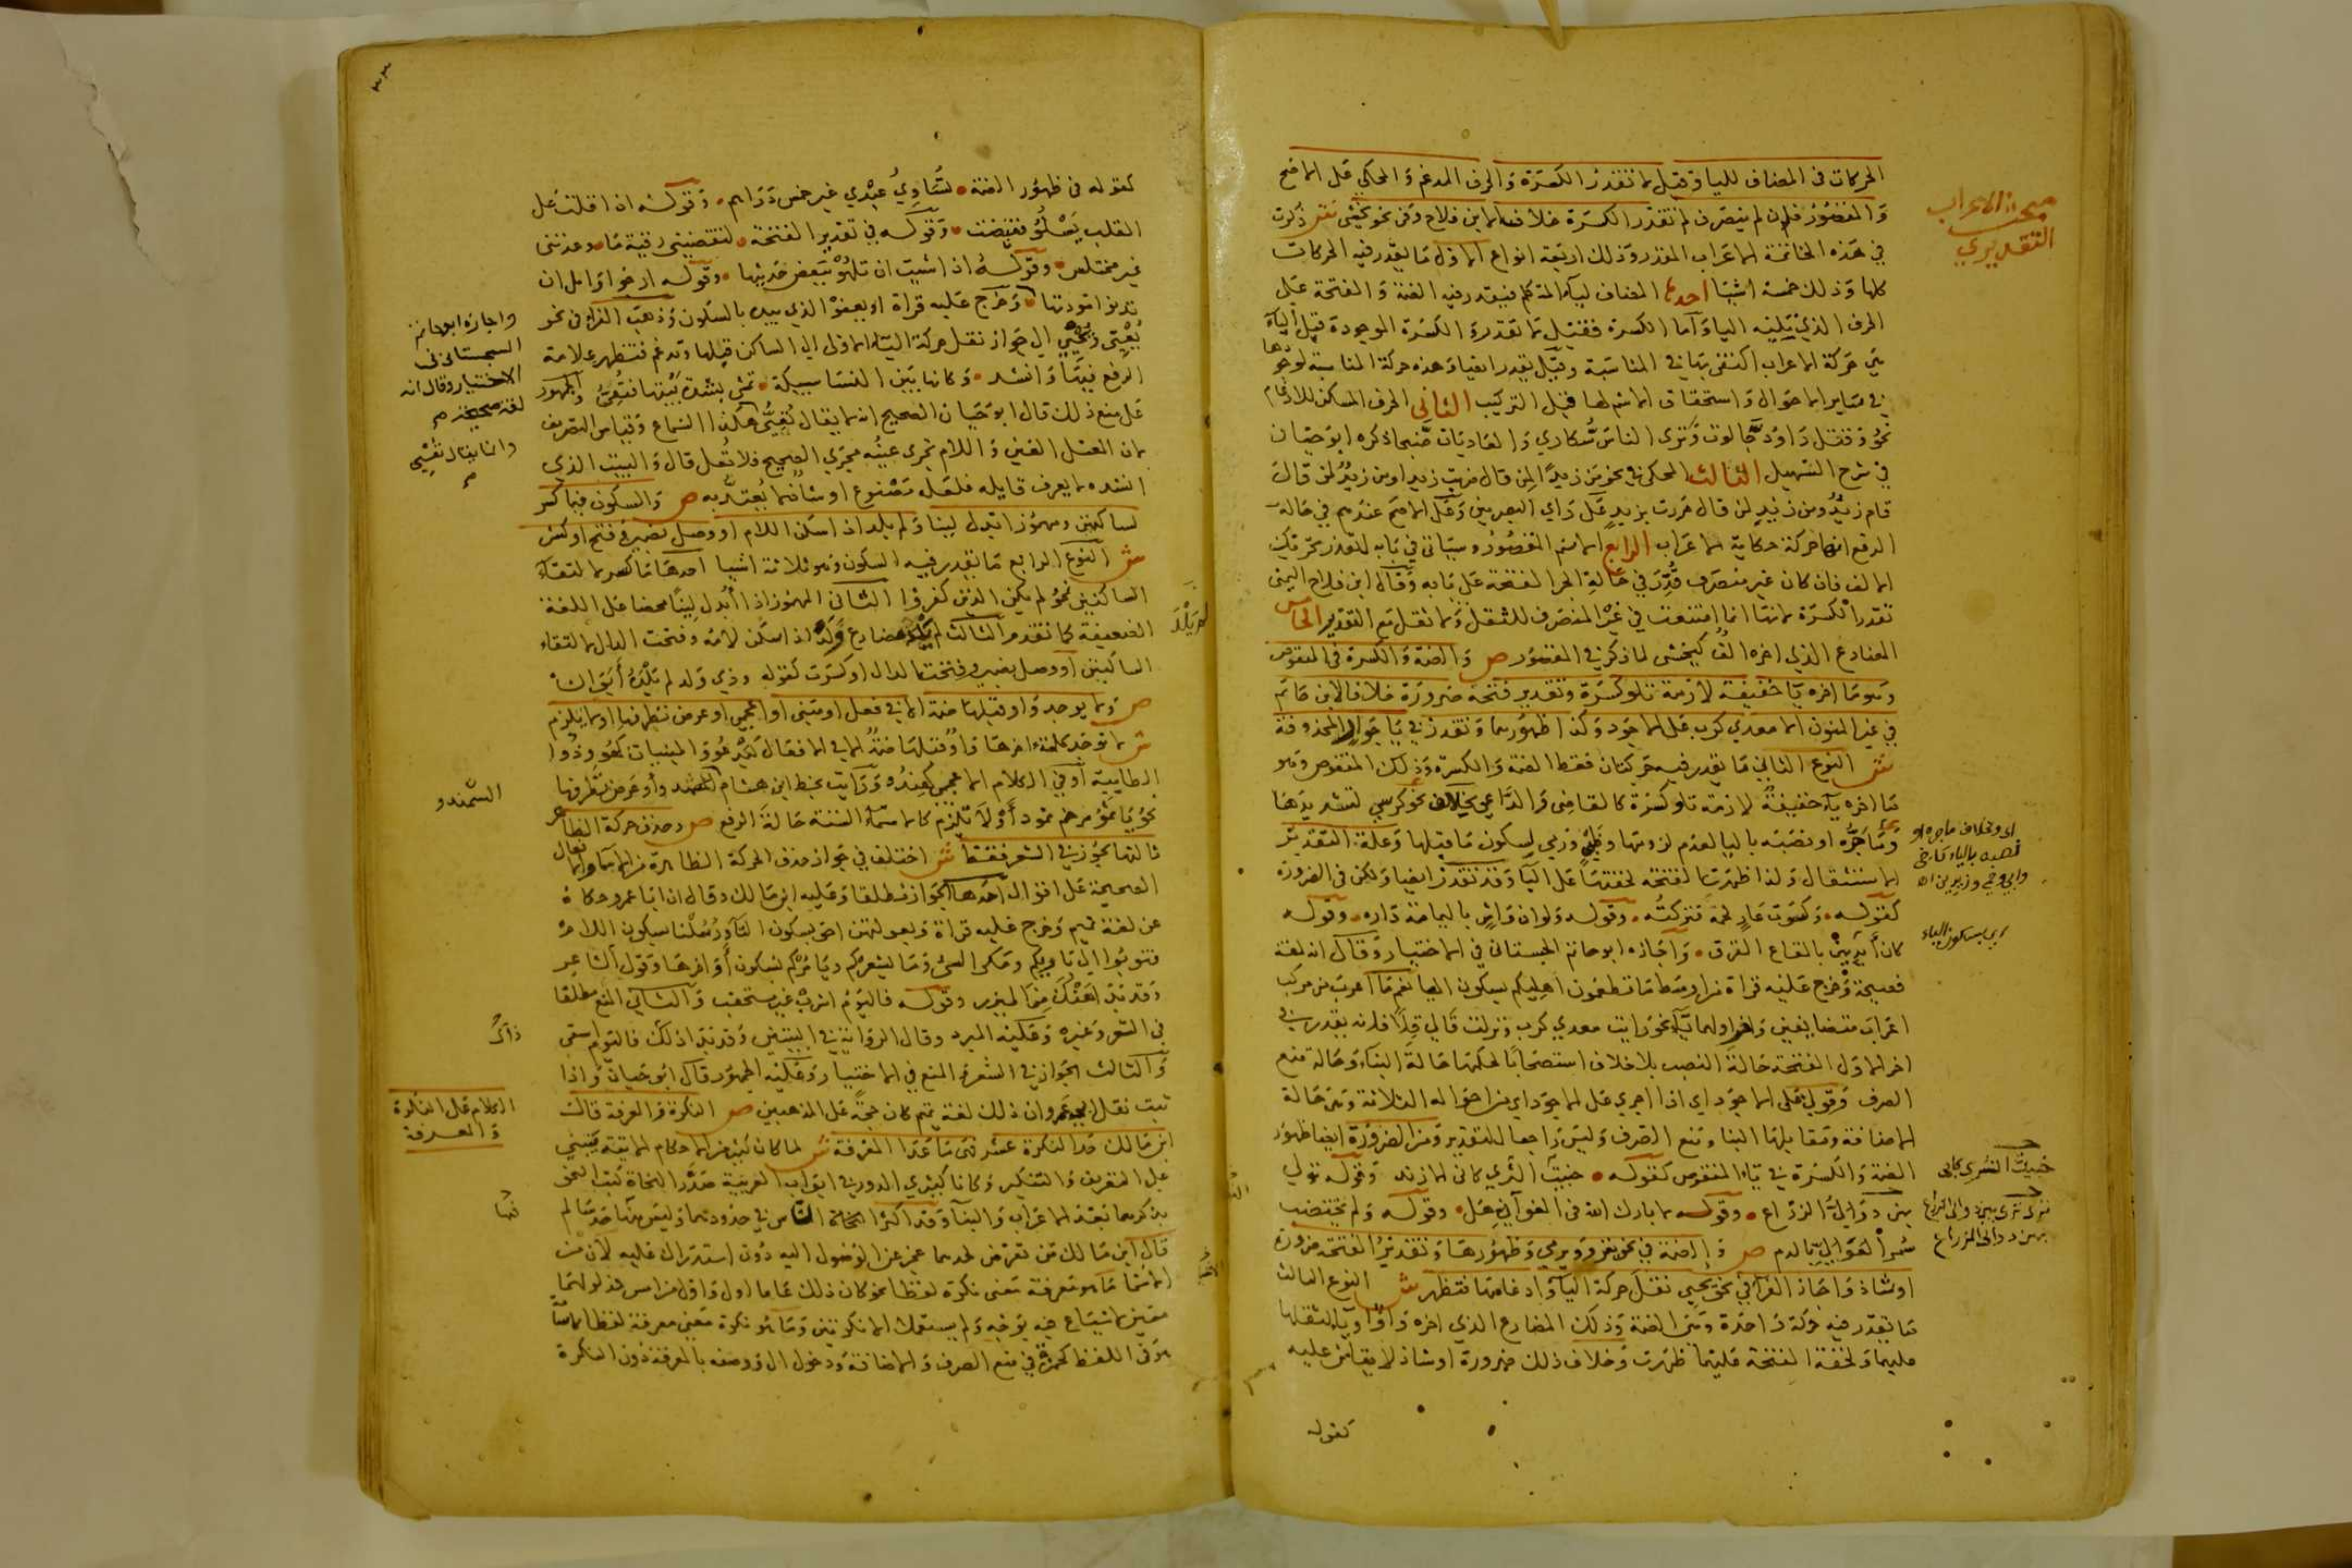 مبحث الاعراب
التقديري
الحركات في المضاف للياء وقيل لا تقدر الكسرة والحرف المدغم والمحكي على الاصح
والمقصور فان لم ينصرف لم تقدر الكسرة خلافا لابن فلاح وفي نحو يخشى ش ذكرت
في هذه الخاتمة الاعراب المقدر وذلك اربعة انواع الاول ما يقدر فيه الحركات
كلها وذلك خمسة اشيا احدها المضاف لياء المتكلم فيقدر فيه الضمة والفتحة على
الحرف الذي يليه الياء واما الكسرة فقيل لا تقدر والكسرة الموجودة قبل الياء
هي حركة الاعراب اكتفى بها في المناسبة وقيل يقدر ايضا وهذه حركة المناسبة لوجودها
في ساير الاحوال واستحقاق الاسم لها قبل التركيب الثاني الحرف المسكن للادغام
نحو وقتل داود جالوت وترى الناس سكارى والعاديات ضبحا ذكره ابو حيان
في شرح التسهيل الثالث المحكي في نحو من زيدا لمن قال ضربت زيدا ومن زيد لمن قال
قام زيد ومن زيد لمن قال مررت بزيد على راي البصريين وعلى الاصح عندهم في حالة
الرفع انها حركة حكاية لا اعراب الرابع الاسم المقصور وسياتي في بابه لتعذر تحريك
الالف فان كان غير منصرف قدر في حالة الجر الفتحة على بابه وقال ابن فلاح اليمني
تقدر الكسرة لانها انما امتنعت في غير المنصرف للثقل ولا ثقل مع التقدير الخامس
المضارع الذي اخره الف كيخشى لما ذكر في المقصور ص والضمة والكسرة في المنقوص
وهو ما اخره يا خفيفة لازمة تلو كسرة وتقدير فتحه ضرورة خلافا لابي حاتم
في غير المنون الا معدي كرب على الاجود وكذا ظهورهما وتقدر في يا جوار المحذوفة
ش النوع الثاني ما يقدر فيه حركتان فقط الضمة والكسرة وذلك المنقوص وهو
ما اخره ياء خفيفة لازمة تلو كسرة كالقاضي والداعي بخلاف نحو كرسي لتشديدها
وما جره او نصبه باليا لعدم لزومها وظبي ورمي لسكون ما قبلها وعلة التقدير
الاستثقال ولذا ظهرت الفتحة لخفتها على الياء وقد تقدر ايضا ولكن في الضرورة
كقوله وكسوت عار لحمه فتركته وقوله ولو ان واش باليمامة داره وقوله
كان ايديهن بالقاع القرق واجازه ابو حاتم السجستاني في الاختيار وقال انه لغة
فصيحة وخرج عليه قراة من اوسط ما تطعمون اهليكم بسكون اليا نعم ما اعرب من مركب
اعراب متضايفين واخر اولهما ياء نحو رايت معدي كرب ونزلت قالي قلا فانه يقدر في
اخر الاول الفتحة حالة النصب بلا خلاف استصحابا لحكمها حالة البناء وحالة منع
الصرف وقولي على الاجود اي اذا اجري على الاجود اي من احواله الثلاثة وهي حالة
الاضافة ومقابلها البنا ومنع الصرف وليس راجعا للتقدير ومن الضرورة ايضا ظهور
الضمة والكسرة في ياء المنقوص كقوله خبيث الثرى كابي الازند وقوله تولي
بين دوالي الزراع وقوله لا بارك الله في الغواني هل وقوله ولم يختضب
سمر العوالي بالدم ص والضمة في نحو يغزو ويرمي وظهورها وتقدير الفتحة ضرورة
او شاذ واجاز الفرا في نحو يحيي نقل حركة الياء وادغامها فتظهر ش النوع الثالث
ما يقدر فيه حركة واحدة وهي الضمة وذلك المضارع الذي اخره واو او ياء لثقلها
عليهما ولخفة الفتحة عليهما ظهرت وخلاف ذلك ضرورة او شاذ لا يقاس عليه
كقوله
بالياء
اي بسكون الياء
خبيث الثرى كابي
كقوله في ظهور الضمة تساوي عندي غير خمس دراهم وقوله اذا قلت عل
القلب يسلو قيضت وقوله في تقدير الفتحة لتقضيني رقية ما وعدتني
غير مختلس وقوله اذا شيت ان تلهو ببعض حديثها وقوله ارجو وامل ان
تدنو مودتها وخرج عليه قراة او يعفو الذي بيده بالسكون وذهب الفراء في نحو
يعيي ويحيي الى جواز نقل حركة الياء الاولى الى الساكن قبلها وتدغم فتظهر علامة
الرفع فيها وانشد وكانها بين النساء سبيكة تمشي بشدة بيتها فتعي والجمهور
على منع ذلك قال ابو حيان الصحيح انه لا يقال يعي هكذا السماع وقياس التصريف
لان المعتل العين واللام تجري عينه مجرى الصحيح فلا تعل قال والبيت الذي
انشده لا يعرف قايله فلعله مصنوع او شاذ لا يعتد به ص والسكون فيما كسر
لساكنين ومهموز ابدل لينا ولم يلد اذا سكن اللام او وصل بضمير وفتح او كسر
ش النوع الرابع ما يقدر فيه السكون وهو ثلاثة اشيا احدها ما كسر لالتقاء
الساكنين نحو لم يكن الذين كفروا الثاني المهموز اذا ابدل لينا محضا على اللغة
الضعيفة كما تقدم الثالث لم يلد مضارع ولد اذا سكن لامه وفتحت الدال لالتقاء
الساكنين او وصل بضمير وفتحت الدال او كسرت كقوله وذي ولد لم يلده ابوان
ص ولا يوجد واو قبلها ضمة الا في فعل او مبني او اعجمي او عرض تطرفها او لا يلزم
ش لا توجد كلمة اخرها واو قبلها ضمة الا في الافعال كيدعو والمبنيات كهو وذو
الطايية او في الكلام الاعجمي كهندو ورايت بخط ابن هشام كسمندو او عرض تطرفها
نحو يا ثمو مرخم ثمود او لا تلزم كالاسماء الستة حالة الرفع ص وحذف حركة الظاهر
ثالثها يجوز في الشعر فقط ش اختلف في جواز حذف الحركة الظاهرة من الاسماء والافعال
الصحيحة على اقوال احدها الجواز مطلقا وعليه ابن مالك وقال ان ابا عمرو حكاه
عن لغة تميم وخرج عليه قراة وبعولتهن احق بسكون التاء ورسلنا بسكون اللام
فتوبوا الى باريكم ومكر السيئ وما يشعركم ويامركم بسكون اواخرها وقول الشاعر
وقد بدا هنك من المئزر وقوله فاليوم اشرب غير مستحقب والثاني المنع مطلقا
في الشعر وغيره وعليه المبرد وقال الرواية في البيتين وقد بدا ذلك فاليوم اسقى
والثالث الجواز في الشعر والمنع في الاختيار وعليه الجمهور قال ابو حيان واذا
ثبت نقل ابي عمرو ان ذلك لغة تميم كان حجة على المذهبين ص النكرة والمعرفة قال
ابن مالك حد النكرة عسر فهي ما عدا المعرفة ش لما كان كثير من الاحكام الاتية يبنى
على التعريف والتنكير وكانا كثيري الدور في ابواب العربية صدر النحاة كتب النحو
بذكرهما بعد الاعراب والبناء وقد اكثر الناس في حدودهما وليس منها حد سالم
قال ابن مالك من تعرض لحدهما عجز عن الوصول اليه دون استدراك عليه لان من
الاسما ما هو معرفة معنى نكرة لفظا نحو كان ذلك عاما اول واول من امس فمدلولهما
معين لا شياع فيه بوجه ولم يستعملا الا نكرتين وما هو نكرة معنى معرفة لفظا كاسامة
هو في اللفظ كحمزة في منع الصرف والاضافة ودخول ال ووصفه بالمعرفة دون النكرة
واجازه ابو حاتم
السجستاني في
الاختيار وقال انه
لغة فصيحة
السمندو
ذاك
الكلام على النكرة
والمعرفة